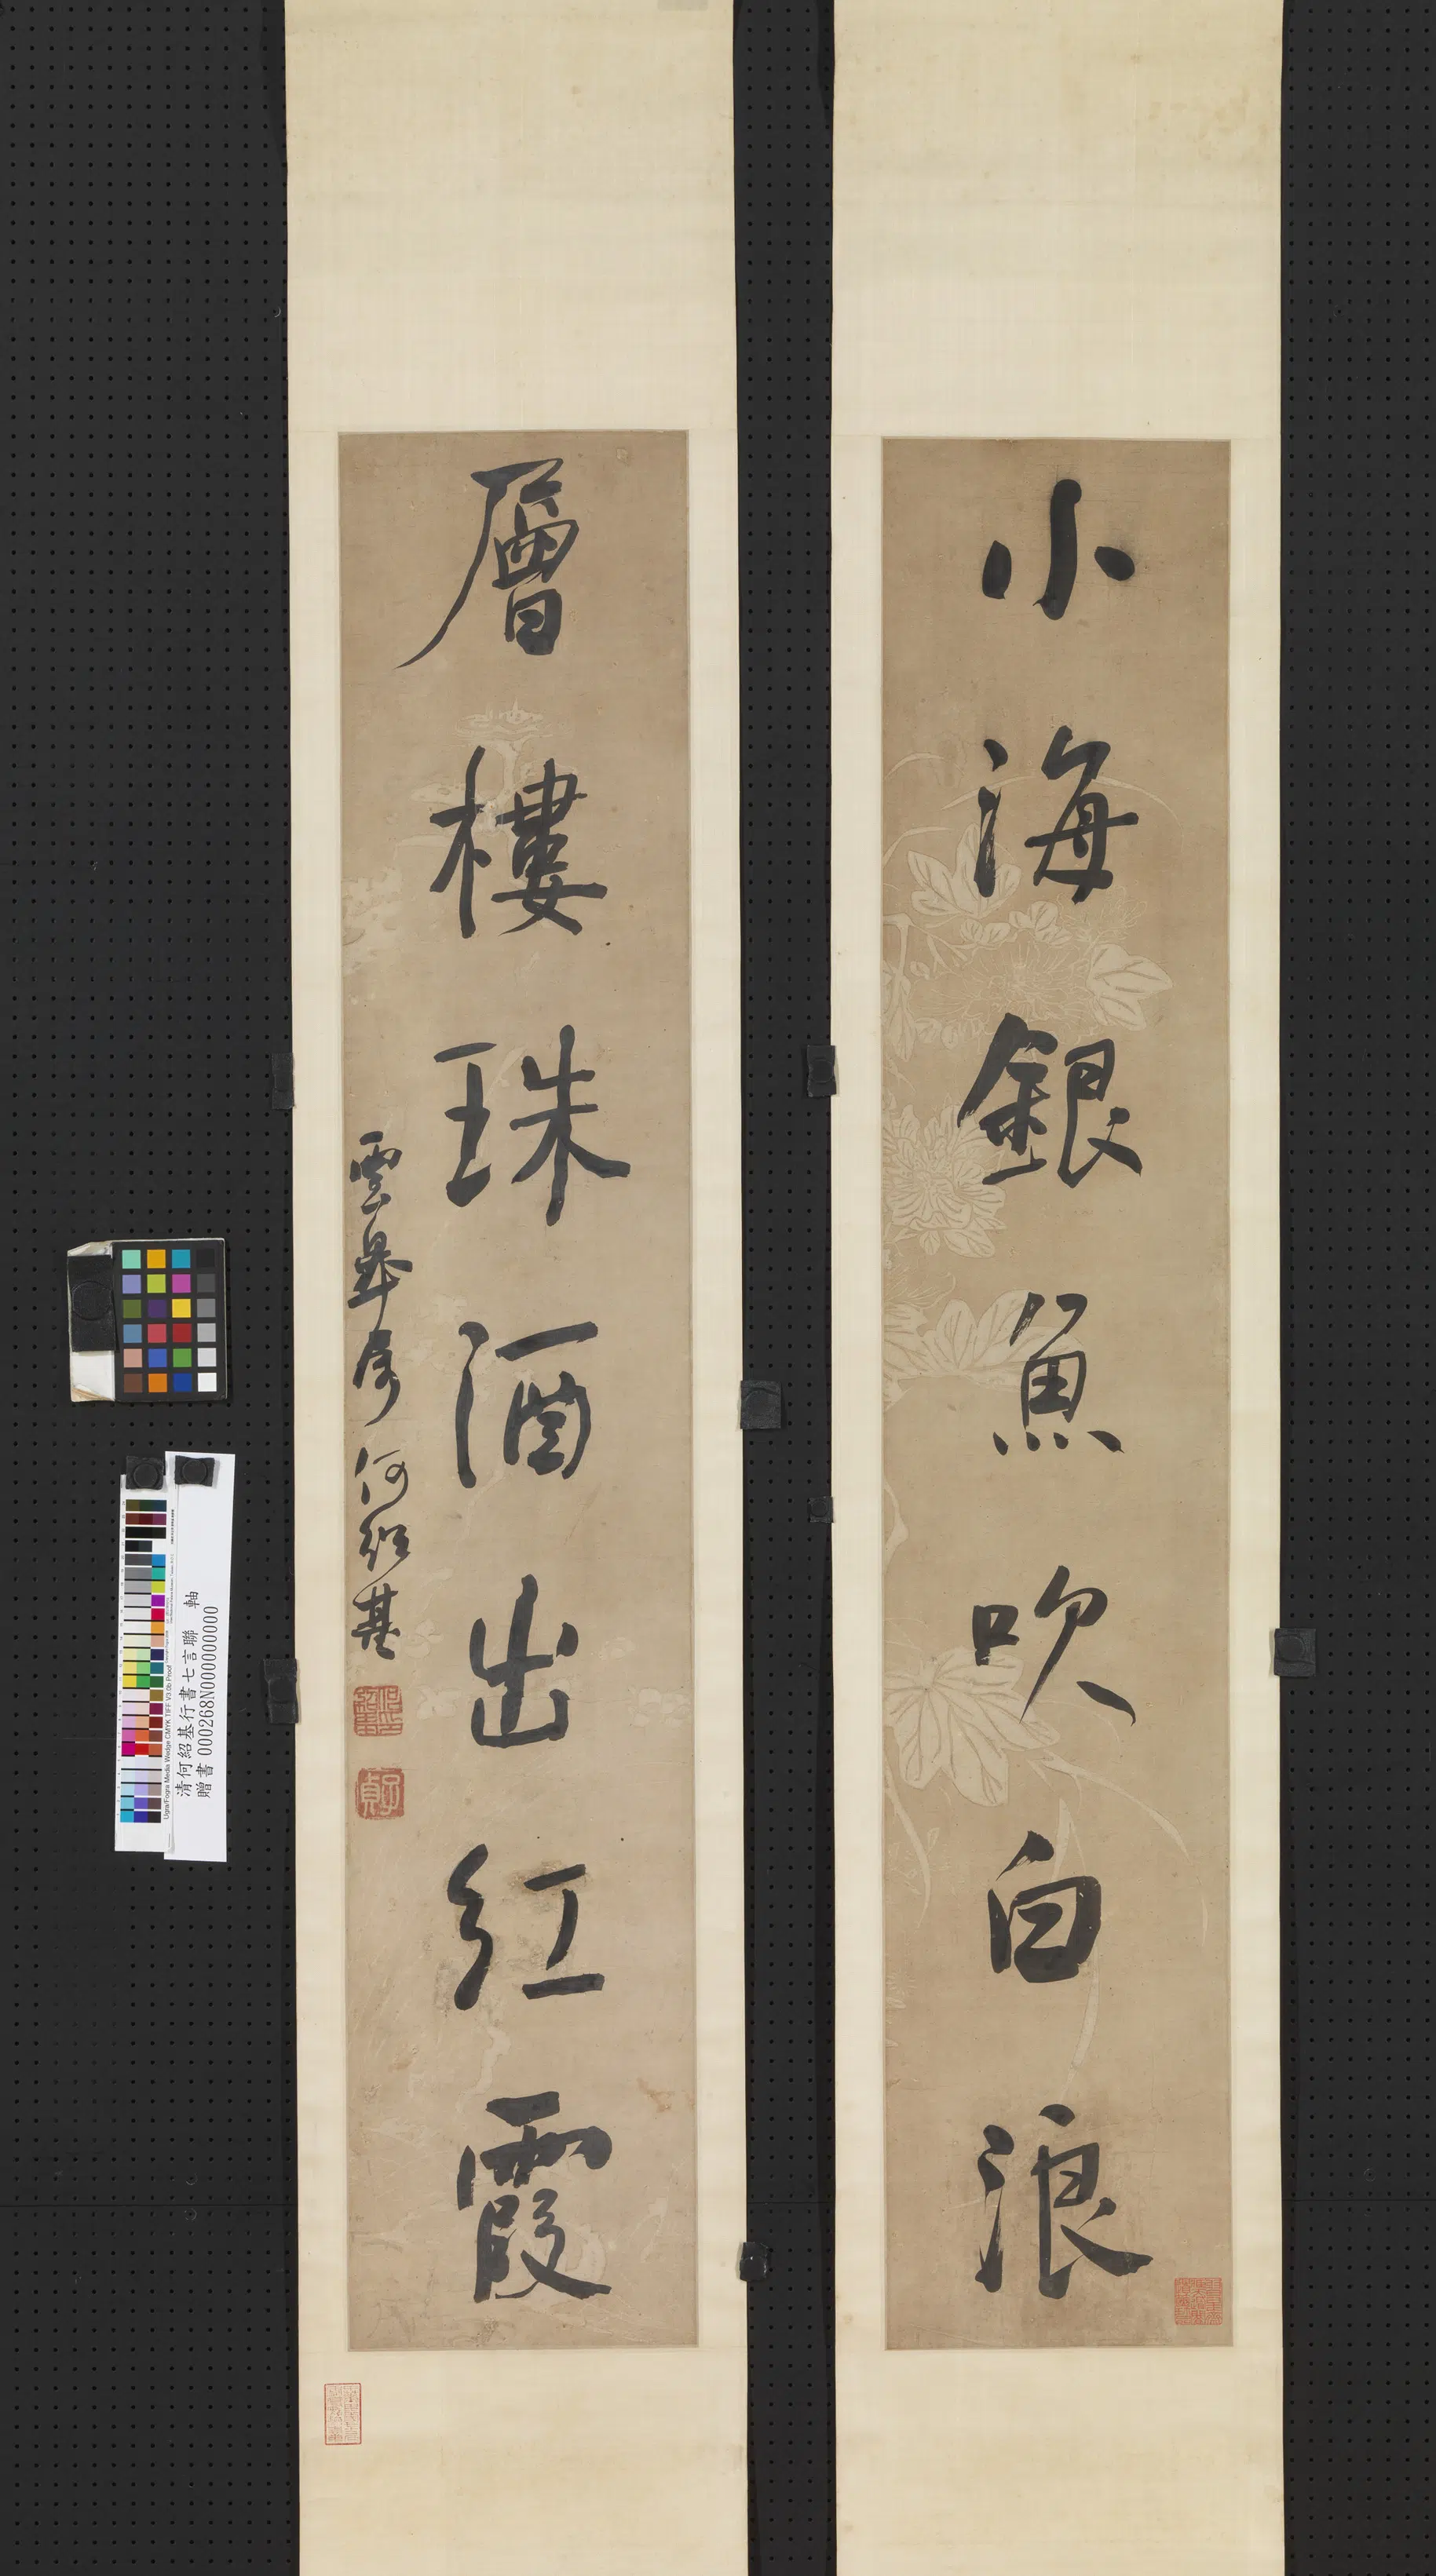 小海銀魚吹白浪
層樓珠酒出紅霞
雲皋屬
何紹基
子貞
清何紹基行書七言聯　軸
贈書 000268N000000000
Ugra/Fogra Media Wedge CMYK TIFF V3.0b Proof